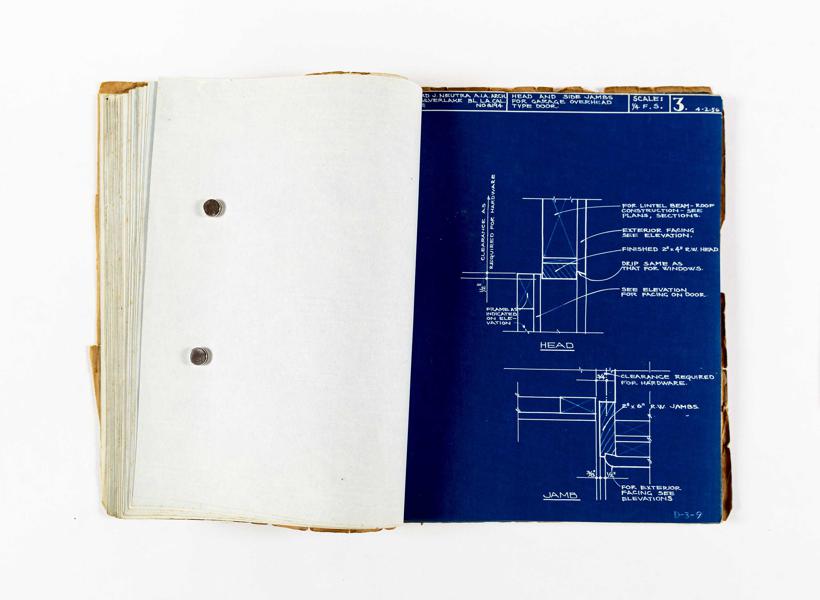 D J. NEUTRA A.I.A. ARCH.
ILVERLAKE BL. LA. CAL.
NO 8194
HEAD AND SIDE JAMBS
FOR GARAGE OVERHEAD
TYPE DOOR.
SCALE:
¼ F.S.
3.
4-2-56
CLEARANCE AS
REQUIRED FOR HARDWARE
FOR LINTEL BEAM-ROOF
CONSTRUCTION - SEE
PLANS, SECTIONS.
EXTERIOR FACING
SEE ELEVATION.
FINISHED 2" x 4" R.W. HEAD
DRIP SAME AS
THAT FOR WINDOWS.
½"
SEE ELEVATION
FOR FACING ON DOOR.
FRAME AS
INDICATED
ON ELE-
VATION
HEAD
¾"
CLEARANCE REQUIRED
FOR HARDWARE.
2" x 6" R.W. JAMBS.
½"
FOR EXTERIOR
FACING SEE
ELEVATIONS
JAMB
D-3-9